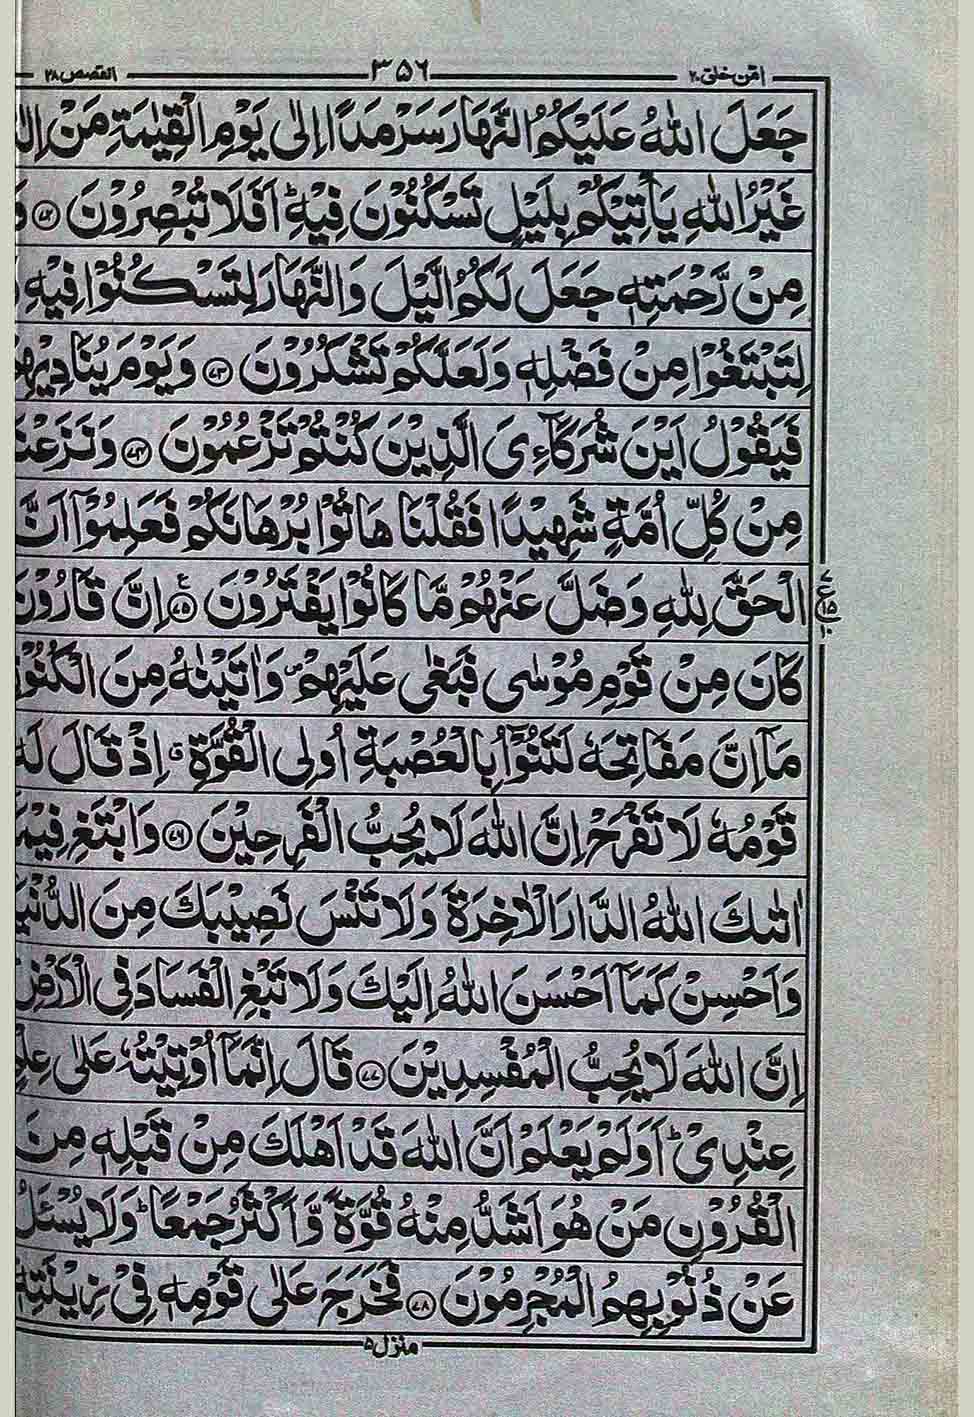 امن خلق ٢٠ ٣٥٦ القصص ٢٨
جَعَلَ اللّٰهُ عَلَيْكُمُ النَّهَارَ سَرْمَدًا اِلٰى يَوْمِ الْقِيٰمَةِ مَنْ
غَيْرُ اللّٰهِ يَاْتِيْكُمْ بِلَيْلٍ تَسْكُنُوْنَ فِيْهِ ؕ اَفَلَا تُبْصِرُوْنَ ﴿٧٢﴾
مِنْ رَّحْمَتِهٖ جَعَلَ لَكُمُ الَّيْلَ وَالنَّهَارَ لِتَسْكُنُوْا فِيْهِ
لِتَبْتَغُوْا مِنْ فَضْلِهٖ وَلَعَلَّكُمْ تَشْكُرُوْنَ ﴿٧٣﴾ وَيَوْمَ يُنَادِيْهِمْ
فَيَقُوْلُ اَيْنَ شُرَكَآءِىَ الَّذِيْنَ كُنْتُمْ تَزْعُمُوْنَ ﴿٧٤﴾ وَنَزَعْنَا
مِنْ كُلِّ اُمَّةٍ شَهِيْدًا فَقُلْنَا هَاتُوْا بُرْهَانَكُمْ فَعَلِمُوْۤا اَنَّ
الْحَقَّ لِلّٰهِ وَضَلَّ عَنْهُمْ مَّا كَانُوْا يَفْتَرُوْنَ ﴿٧٥﴾ ع اِنَّ قَارُوْنَ
كَانَ مِنْ قَوْمِ مُوْسٰى فَبَغٰى عَلَيْهِمْ ص وَاٰتَيْنٰهُ مِنَ الْكُنُوْزِ
مَاۤ اِنَّ مَفَاتِحَهٗ لَتَنُوْٓاُ بِالْعُصْبَةِ اُولِى الْقُوَّةِ ق اِذْ قَالَ لَهٗ
قَوْمُهٗ لَا تَفْرَحْ اِنَّ اللّٰهَ لَا يُحِبُّ الْفَرِحِيْنَ ﴿٧٦﴾ وَابْتَغِ فِيْمَاۤ
اٰتٰىكَ اللّٰهُ الدَّارَ الْاٰخِرَةَ وَلَا تَنْسَ نَصِيْبَكَ مِنَ الدُّنْيَا
وَاَحْسِنْ كَمَاۤ اَحْسَنَ اللّٰهُ اِلَيْكَ وَلَا تَبْغِ الْفَسَادَ فِى الْاَرْضِ
اِنَّ اللّٰهَ لَا يُحِبُّ الْمُفْسِدِيْنَ ﴿٧٧﴾ قَالَ اِنَّمَاۤ اُوْتِيْتُهٗ عَلٰى عِلْمٍ
عِنْدِىْ ؕ اَوَلَمْ يَعْلَمْ اَنَّ اللّٰهَ قَدْ اَهْلَكَ مِنْ قَبْلِهٖ مِنَ
الْقُرُوْنِ مَنْ هُوَ اَشَدُّ مِنْهُ قُوَّةً وَّاَكْثَرُ جَمْعًا ؕ وَلَا يُسْئَلُ
عَنْ ذُنُوْبِهِمُ الْمُجْرِمُوْنَ ﴿٧٨﴾ فَخَرَجَ عَلٰى قَوْمِهٖ فِىْ زِيْنَتِهٖ
٧ ع ١٥ ١٠
منزل ٥